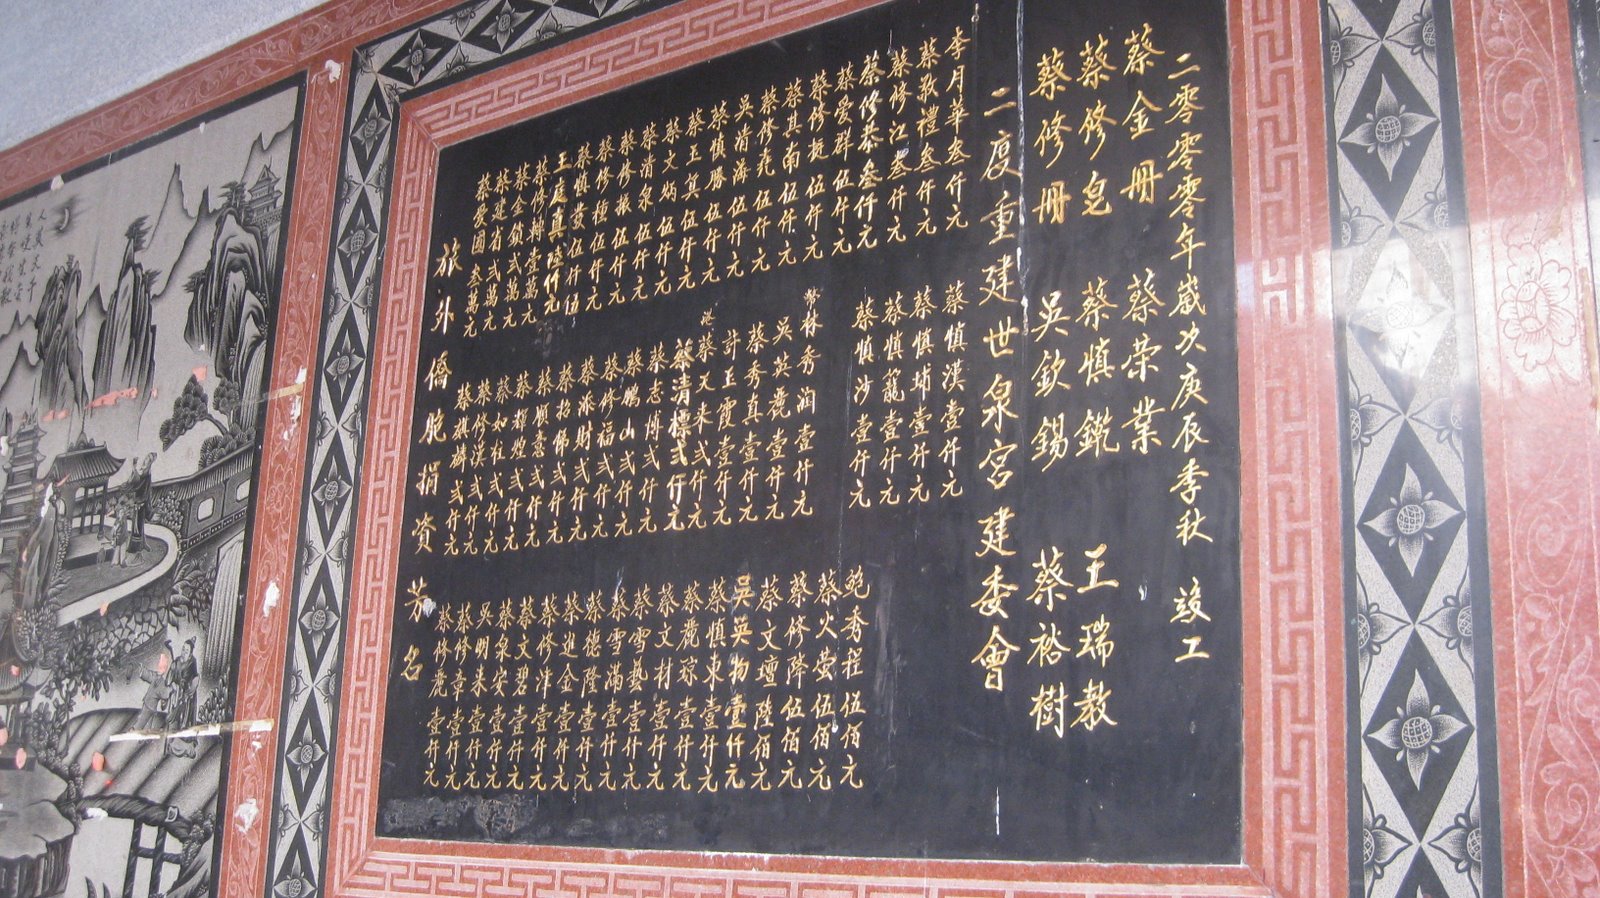 旅外僑胞捐資芳名
蔡愛國叁萬元
蔡建省弍萬元
蔡金鎖弍萬元
蔡修轉壹萬元
王庭真陸仟元
蔡慎菱伍仟伍
蔡修種伍仟元
蔡修振伍仟元
蔡清泉伍仟元
蔡文炳伍仟元
蔡玉真伍仟元
蔡慎勝伍仟元
吳清海伍仟元
蔡修堯伍仟元
蔡其南伍仟元
蔡修挺伍仟元
蔡愛群伍仟元
蔡修恭叁仟元
蔡修江叁仟元
蔡敦禮叁仟元
李月華叁仟元
蔡麒麟弍仟元
蔡修漢弍仟元
蔡如柱弍仟元
蔡輝煌弍仟元
蔡順意弍仟元
蔡招佛弍仟元
蔡派財弍仟元
蔡修福弍仟元
蔡鵬山弍仟元
蔡志博弍仟元
蔡清標弍仟元
港蔡天來弍仟元
許玉霞壹仟元
蔡秀真壹仟元
吳英麗壹仟元
林秀潤壹仟元
蔡慎沙壹仟元
蔡慎籠壹仟元
蔡慎埔壹仟元
蔡慎漢壹仟元
蔡修麗壹仟元
蔡修章壹仟元
吳明來壹仟元
蔡泉安壹仟元
蔡文碧壹仟元
蔡修洋壹仟元
蔡進金壹仟元
蔡德隆壹仟元
蔡雪滿壹仟元
蔡雪藝壹仟元
蔡文材壹仟元
蔡麗琼壹仟元
蔡慎東壹仟元
吳英物壹仟元
蔡文壇陸佰元
蔡修降伍佰元
蔡火萤伍佰元
鮑秀程伍佰元
二度重建世泉宮建委會
蔡修冊 吳欽錫 蔡裕樹
蔡修皂 蔡慎鑨 王瑞教
蔡金冊 蔡荣業
二零零零年歲次庚辰季秋 竣工